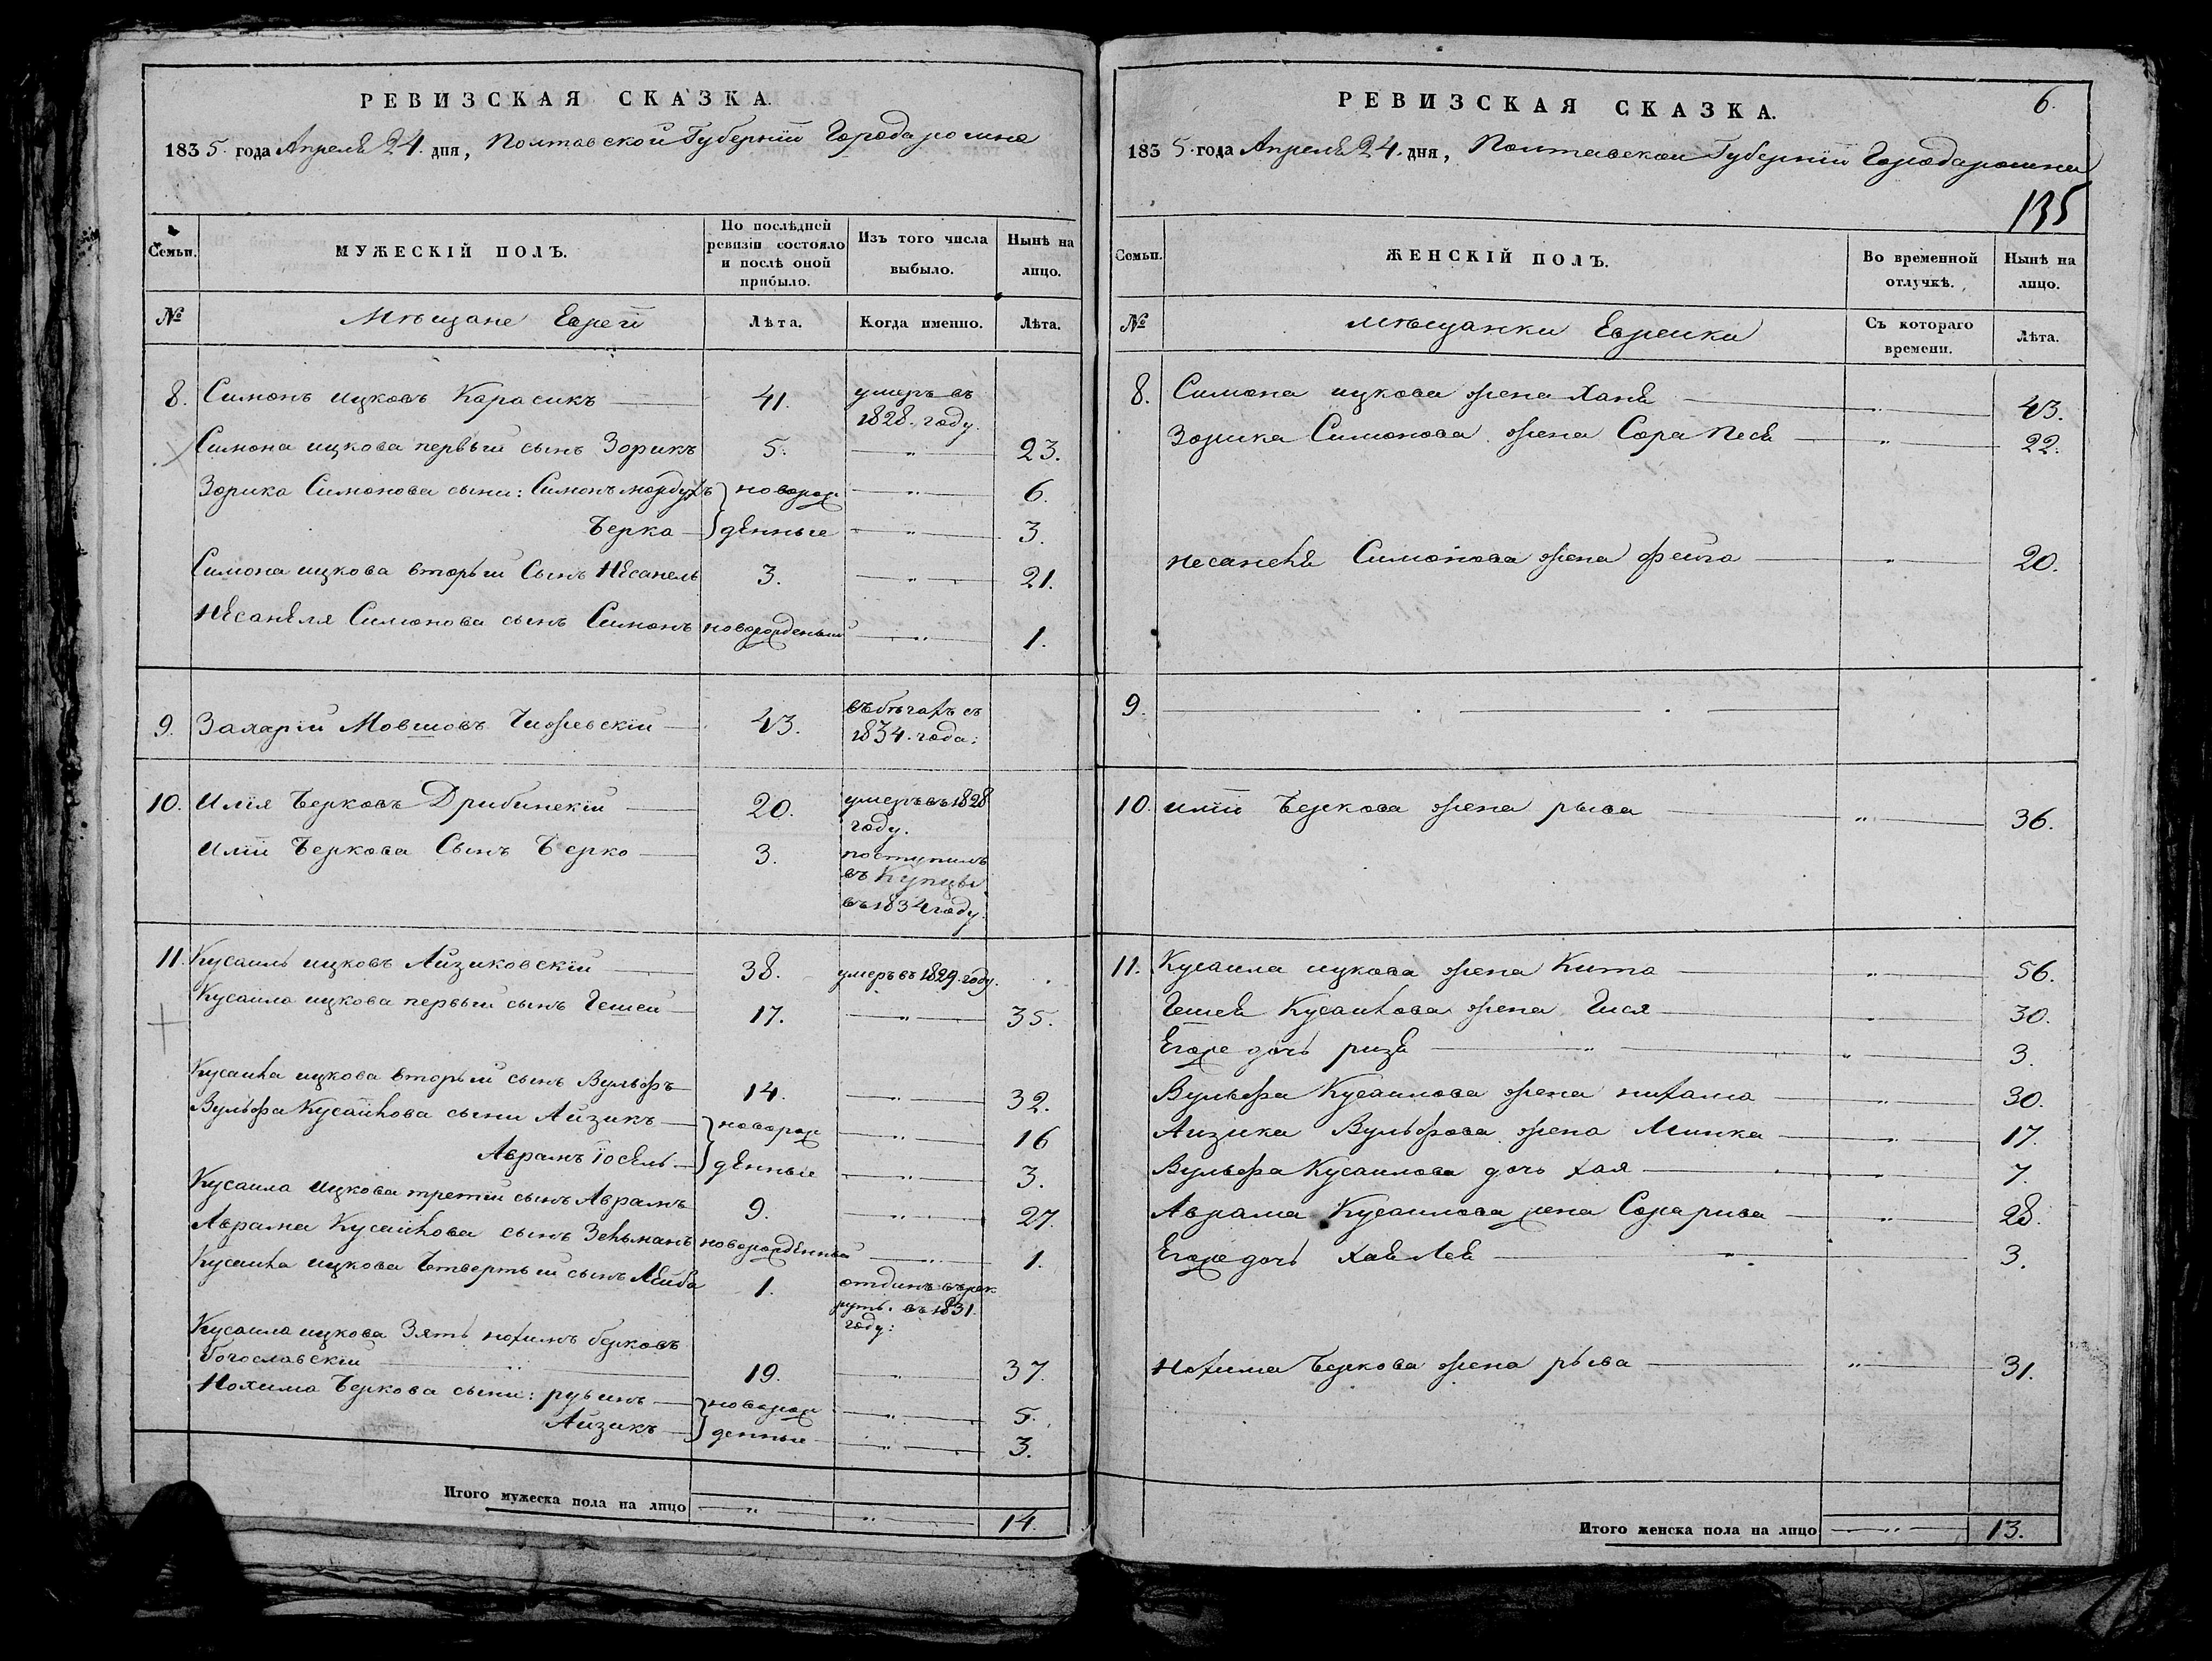 РЕВИЗСКАЯ СКАЗКА.
1835 года Апреля 24 дня, Полтавской Губернїи Города ромна
Семьи. МУЖЕСКІЙ ПОЛЪ. По послѣдней ревизіи состояло и послѣ оной прибыло. Изъ того числа выбыло. Нынѣ на лицо.
№ Мѣщане Евреи Лѣта. Когда именно. Лѣта.
8. Симонъ ицковъ Карасикъ 41. умеръ въ 1828. году.
Симона ицкова первый сынъ Зорикъ 5. " 23.
Зорика Симонова сыни: Симонъ мордухъ новорож " 6.
Берка денные " 3.
Симона ицкова вторый Сынъ Несанель 3. " 21.
Несанеля Симонова сынъ Симонъ новорожденый " 1.
9. Захарїй Мовшовъ Чижевскїй 43. въ бѣгахъ съ 1834. года:
10. Илїя Берковъ Дрибинскїй 20. умеръ въ 1828 году.
Илїи Беркова Сынъ Берко 3. поступилъ въ Купцы въ 1834 году.
11. Кусаилъ ицковъ Айзиковскїй 38. умеръ въ 1829. году.
Кусаила ицкова первый сынъ Гешей 17. " 35.
Кусаила ицкова вторый сынъ Вульфъ 14. " 32.
Вульфа Кусаилова сыни Айзикъ новорож " 16
Аврамъ Їосель денные " 3.
Кусаила ицкова третїй сынъ Аврамъ 9. " 27.
Аврама Кусаилова сынъ Зельманъ новорожденный " 1.
Кусаила ицкова Четвертый сынъ Лейба 1. отдинъ въ рекруты. въ 1831. году:
Кусаила ицкова Зять нохимъ берковъ
Богославскїй " 19. " 37.
Нохима Беркова сыни: рувинъ новорож " 5.
Айзикъ денные " 3.
Итого мужеска пола на лицо " " 14.
РЕВИЗСКАЯ СКАЗКА. 6.
1835 года Апреля 24 дня, Полтавской Губернїи Города ромна
135
Семьи. ЖЕНСКІЙ ПОЛЪ. Во временной отлучкѣ. Нынѣ на лицо.
№ мѣщанки Еврейки Съ котораго времени. Лѣта.
8. Симона ицкова жена Хане " 43.
Зорика Симонова жена Сора Песя " 22.
несанеля Симонова жена фейга " 20.
9.
10. илїи Беркова жена рыва " 36.
11. Кусаила ицкова жена Кита " 56.
Гешея Кусаилова жена Гися " 30.
Егоже дочь ризя " 3.
Вульфа Кусаилова жена нихама " 30.
Айзика Вульфова жена Минка " 17.
Вульфа Кусаилова дочь хая " 7.
Аврама Кусаилова жена Сора рива " 28.
Егоже дочь хая Лея " 3.
Нохима Беркова жена рыва " 31.
Итого женска пола на лицо " 13.